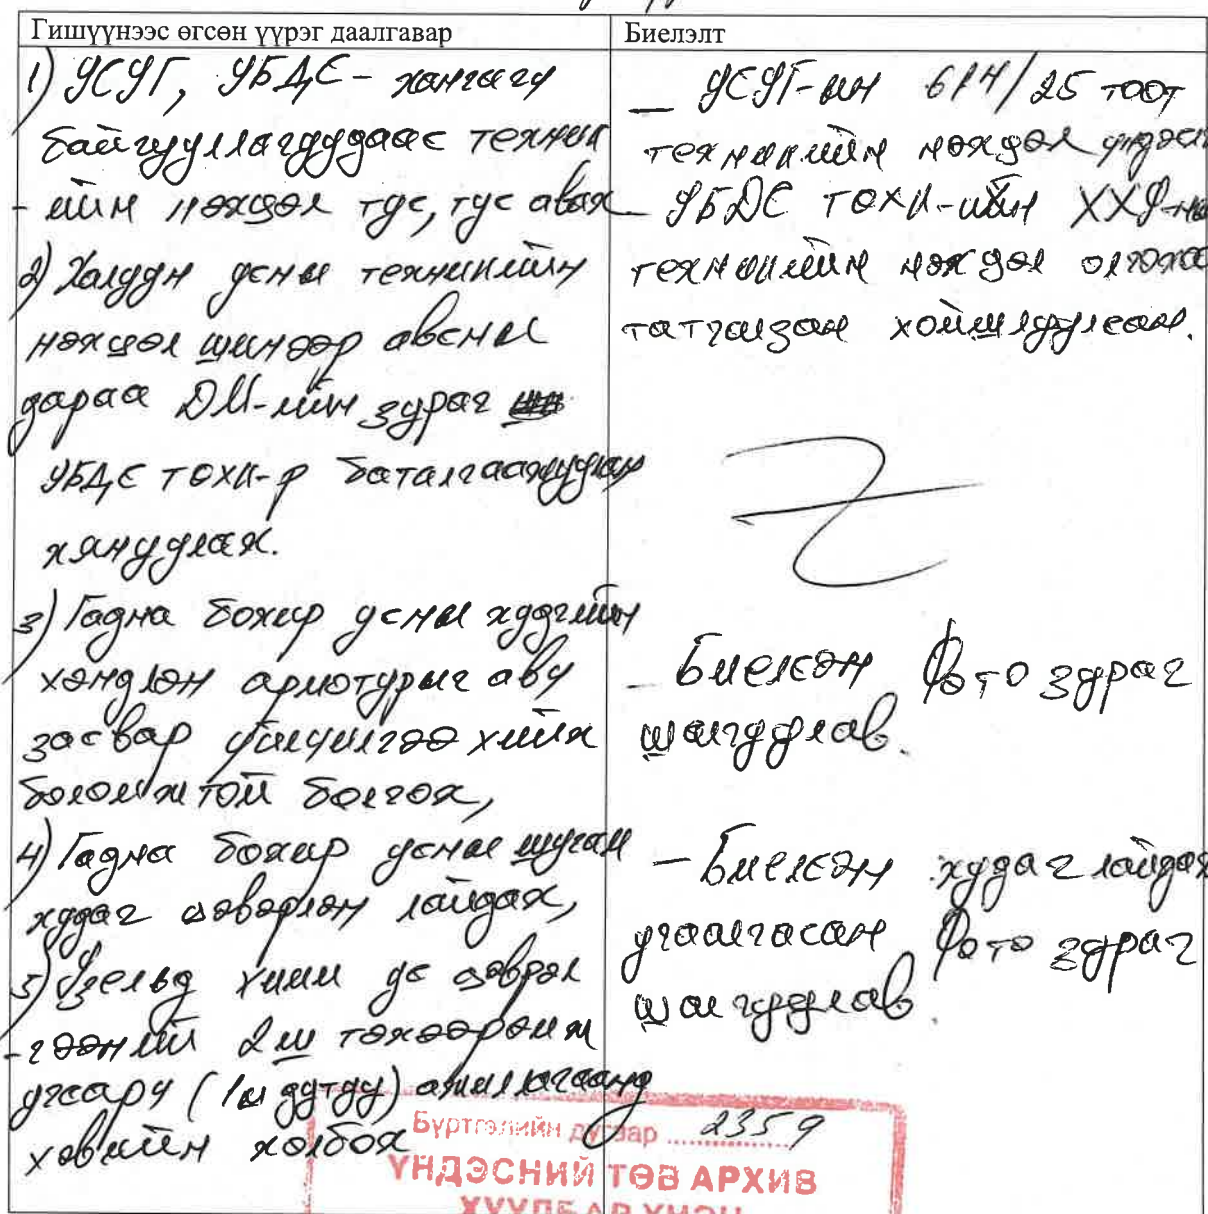 Гишүүнээс өгсөн үүрэг даалгавар
1) УСУГ, УБДС - хангагч
байгууллагуудаас техник
- ийн нөхцөл тус, тус авах
2) Халуун усны техникийн
нөхцөл шинээр авсны
дараа ДМ-ийн зураг
УБДС ТӨХК-р баталгаажуулах
хянуулах.
3) Гадна бохир усны худгийн
хөндлөн арматурыг авч
засвар үйлчилгээ хийх
боломжтой болгох,
4) Гадна бохир усны шугам
худаг цэвэрлэн лайдах,
5) Узельд хими ус цэврэл
- гээний 2ш төхөөрөмж
угсарч (1ш дутуу) ажиллагаанд
хэвийн холбох
Биелэлт
— УСУГ-ын 614/25 тоот
техникийн нөхцөл
— УБДС ТӨХК-ийн ХХҮ-
техникийн нөхцөл олгохоо
татгалзан хойшлуулсан.
- Биелсэн Фото зураг
шалгуулав.
- Биелсэн худаг лайдах
угаалгасан Фото зураг
шалгуулав.
Бүртгэлийн дугаар ........ 2359
ҮНДЭСНИЙ ТӨВ АРХИВ
ХУУЛБАР ҮНЭН